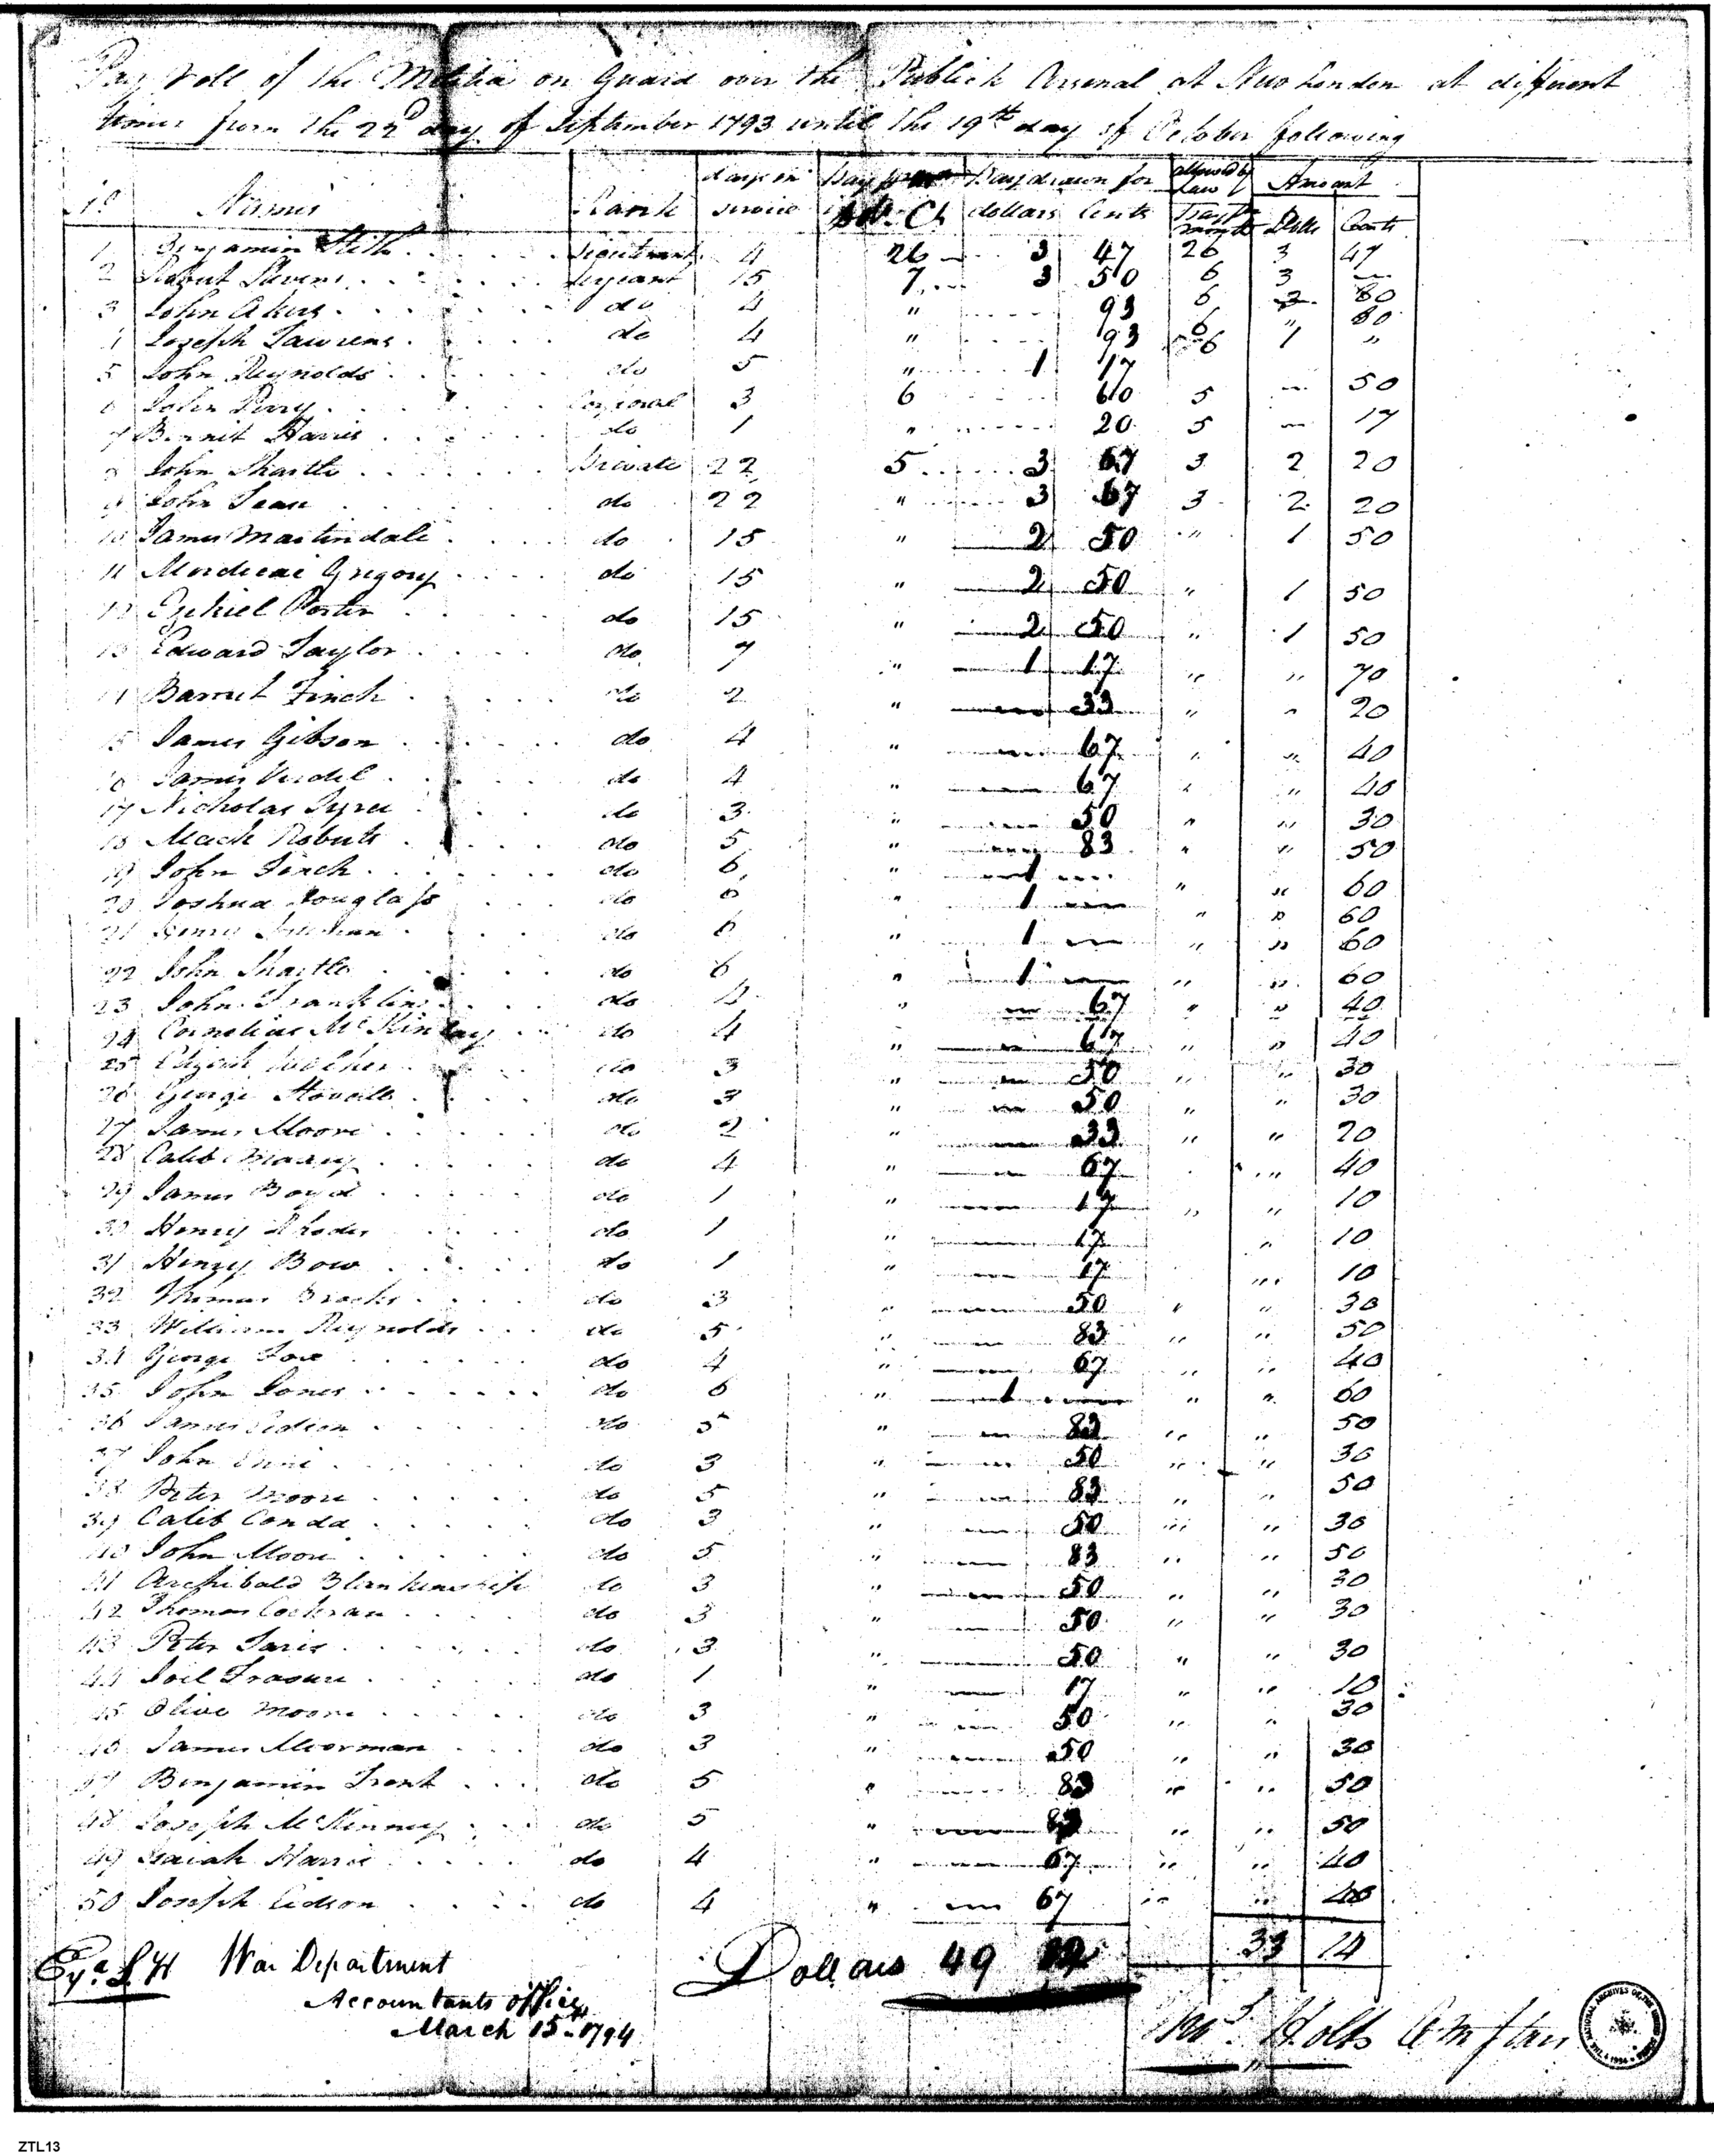 Pay Roll of the Militia on Guard over the Publick Arsenal at New London at different
times from the 22d day of September 1793 until the 19th day of October following
No Names Rank days in service Pay Dol. Cts Pay drawn for dollars Cents allowed by Law Amount Dolls Cents
1 Benjamin Stith Lieutenant 4 26 3 47 26 3 47
2 Robert Stevens Sergeant 15 7 3 50 6 3 —
3 John Akers do 4 " 93 6 80
4 Joseph Lawrens do 4 " 93 6 " 80
5 John Reynolds do 5 " 1 17 6 1 "
6 John Perry Corporal 3 6 60 5 — 50
7 Bennit Harris do 1 " 20 5 — 17
8 John Shartle private 22 5 3 67 3 2 20
9 John Dean do 22 " 3 67 3 2 20
10 James Martindale do 15 " 2 50 " 1 50
11 Mordicai Gregory do 15 " 2 50 " 1 50
12 Ezekiel Porter do 15 " 2 50 " 1 50
13 Edward Taylor do 7 " 1 17 " " 70
14 Barrut Finch do 2 " — 33 " " 20
15 James Gibson do 4 " — 67 " " 40
16 James Verdel do 4 " — 67 " " 40
17 Nicholas Tyree do 3 " — 50 " " 30
18 Mack Roberts do 5 " — 83 " " 50
19 John Finch do 6 " 1 — " " 60
20 Joshua Douglass do 6 " 1 — " " 60
21 Henry do 6 " 1 — " " 60
22 John Shartle do 6 " 1 — " " 60
23 John Franklin do 4 " — 67 " " 40
24 Cornelius McKinley do 4 " — 67 " " 40
25 do 3 " — 50 " " 30
26 George Stovall do 3 " — 50 " " 30
27 James Moore do 2 " — 33 " " 20
28 Caleb do 4 " — 67 " " 40
29 James Boyd do 1 " — 17 " " 10
30 Henry Rhodes do 1 " — 17 " 10
31 Henry Bow do 1 " — 17 " 10
32 Thomas Brooks do 3 " — 50 " " 30
33 William Reynolds do 5 " — 83 " " 50
34 George Fox do 4 " — 67 " " 40
35 John Jones do 6 " 1 — " " 60
36 James Eidson do 5 " — 83 " " 50
37 John do 3 " — 50 " " 30
38 Peter Moore do 5 " — 83 " " 50
39 Calib Conda do 3 " — 50 " " 30
40 John Moore do 5 " — 83 " " 50
41 Archibald Blankenship do 3 " — 50 " " 30
42 Thomas Cochran do 3 " — 50 " " 30
43 Peter Faris do 3 " — 50 " " 30
44 Joil do 1 " — 17 " " 10
45 Olive Moore do 3 " — 50 " " 30
46 James Moorman do 3 " — 50 " " 30
47 Benjamin Trent do 5 " — 83 " " 50
48 Joseph McKinney do 5 " — 83 " " 50
49 Isaiah Harris do 4 " — 67 " " 40
50 Joseph Eidson do 4 " — 67 " " 40
Dollars 49 33 14
War Department
Accountants office
March 15 - 1794
Holts
ZTL13